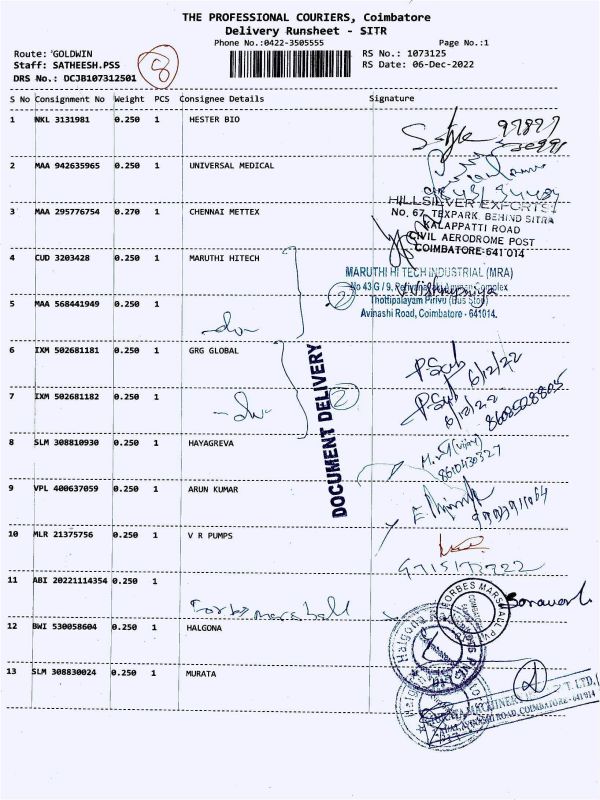 THE PROFESSIONAL COURIERS, Coimbatore
Delivery Runsheet - SITR
Phone No.:0422-3505555 Page No.:1
Route: GOLDWIN
Staff: SATHEESH.PSS
DRS No.: DCJB107312501
8
RS No.: 1073125
RS Date: 06-Dec-2022
S No Consignment No Weight PCS Consignee Details Signature
1 NKL 3131981 0.250 1 HESTER BIO
2 MAA 942635965 0.250 1 UNIVERSAL MEDICAL
3 MAA 295776754 0.270 1 CHENNAI METTEX
HILLSILVER EXPORTS
No. 67, TEXPARK, BEHIND SITRA
KALAPPATTI ROAD
CIVIL AERODROME POST
COIMBATORE-641 014
4 CUD 3203428 0.250 1 MARUTHI HITECH
MARUTHI HI TECH INDUSTRIAL (MRA)
No 43 G / 9, Complex
Thottipalayam Pirivu (Bus Stop)
Avinashi Road, Coimbatore - 641014.
5 MAA 568441949 0.250 1
-do-
2
6 IXM 502681181 0.250 1 GRG GLOBAL
6/12/22
7 IXM 502681182 0.250 1
-do-
2
6/12/22
DOCUMENT DELIVERY
8 SLM 308810930 0.250 1 HAYAGREVA
(vijay)
8610430327
9 VPL 400637059 0.250 1 ARUN KUMAR
10 MLR 21375756 0.250 1 V R PUMPS
11 ABI 20221114354 0.250 1
Forbes marshall
FORBES MARSHALL PVT
12 BWI 530058604 0.250 1 HALGONA
Halgona
13 SLM 308830024 0.250 1 MURATA